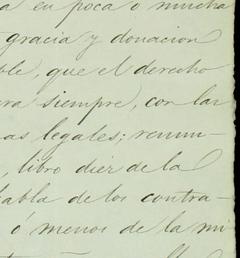 a en poca o mucha
gracia y donacion
ble, que el derecho
ra siempre, con las
as legales; renun-
, libro diez de la
habla de los contra-
ó menos de la mi